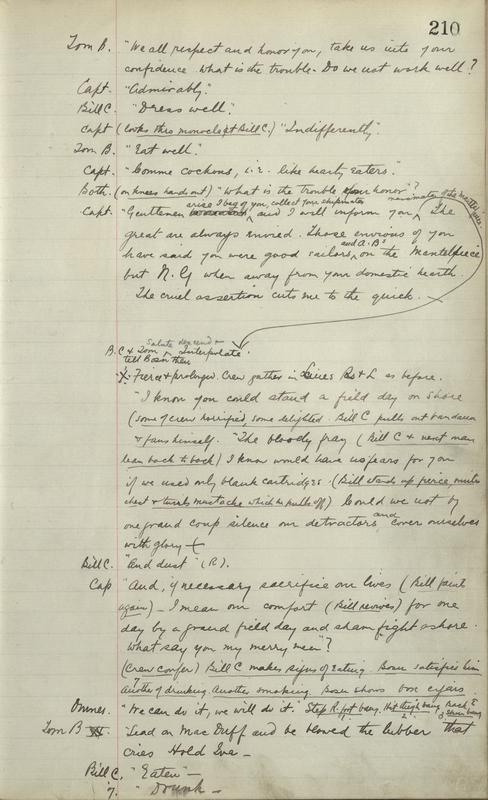 210
Tom B. "We all respect and honor you, take us into your
confidence. What is the trouble. Do we not work well?
Capt. "Admirably."
Bill C. "Dress well."
Capt (looks thro monocle at Bill C.) "Indifferently."
Tom B. "Eat well."
Capt. "Comme cochons, i.e. like hearty eaters."
Both. (on knees hands out) "What is the trouble your honor"?
arise I beg of you, collect your shipmates
Capt- "Gentlemen and I will inform you. The
great are always envied. Those envious of you
and A.B's
have said you were good sailors, on the Mantelpiece
but N.G when away from your domestic hearth.
The cruel assertion cuts me to the quick.
Salute descend &
B.C & Tom Interpolate.
tell Bosn then
X Fierce & prolonged. Crew gather in Lines Rs & L as before.
"I know you could stand a field day on shore
(some of crew horrified, some delighted. Bill C pulls out bandana
& fans himself. "The bloody fray (Bill C & next man
lean back to back) I know would have no fears for you
if we used only blank cartridges. (Bill stands up fierce,
chest & twirls mustache which he pulls off) Could we not by
one grand coup silence our detractors and cover ourselves
with glory
Bill C. "And dust" (R).
Cap "And, if necessary sacrifice our lives (Bill faint
again) - I mean our comfort (Bill revives) for one
day by a grand field day and sham fight ashore.
What say you my merry men"?
(Crew confer) Bill C makes signs of Eating. Bosn satisfies him
Another of drinking. Another smoking. Bosn shows box cigars
Omnes. "We can do it, we will do it." Step R. foot bang. Hit thigh bang
Tom B "Lead on MacDuff and be blowed the lubber that
cries Hold Ine -
Bill C. "Eaten" -
7. "Drunk -